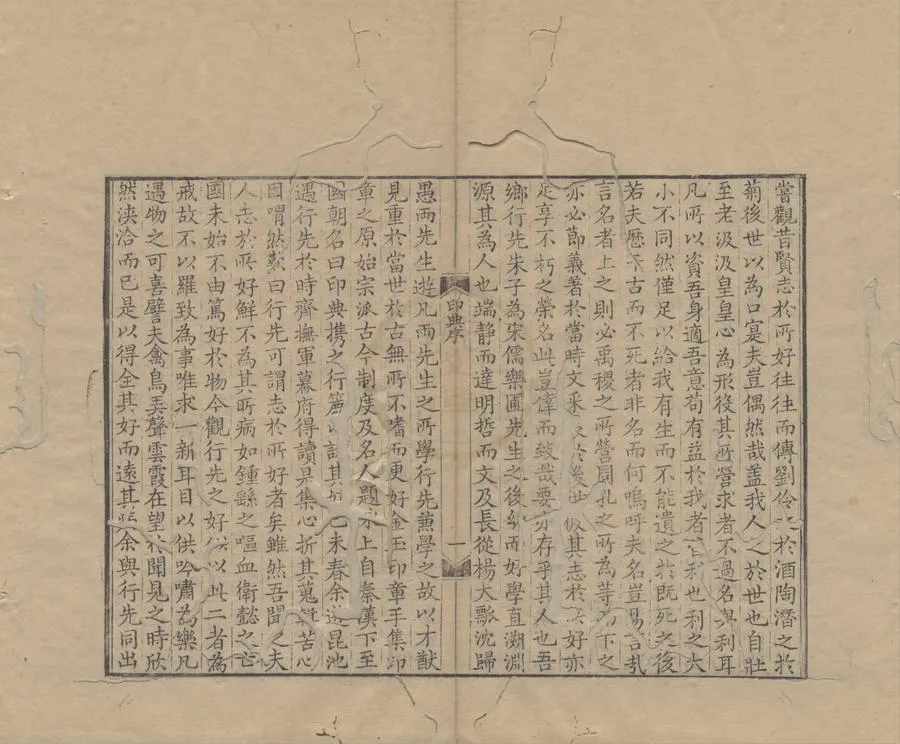 嘗觀昔賢志於所好往往而傳劉伶之於酒陶潛之於
菊後世以為口寔夫豈偶然哉蓋我人之於世也自壯
至老汲汲皇皇心為形役其所營求者不過名與利耳
凡所以資吾身適吾意苟有益於我者皆利也利之大
小不同然僅足以給我有生而不能遺之於既死之後
若夫歷千古而不死者非名而何嗚呼夫名豈易言哉
言名者上之則必禹稷之所營周孔之所為等而下之
亦必節義著於當時文采 於後世 其志於所好亦
足享不朽之榮名此豈倖而致哉要亦存乎其人也吾
鄉行先朱子為宋儒樂圃先生之後幼而好學直溯淵
源其為人也端静而達明哲而文及長從楊大瓢沈歸
印典序
一
愚兩先生遊凡兩先生之所學行先兼學之故以才猷
見重於當世於古無所不嗜而更好金玉印章手集印
章之原始宗派古今制度及名人題 上自秦漢下至
國朝名曰印典携之行篋以 其 己未春余 昆池
遇行先於時齊撫軍幕府得讀是集心折其蒐輯苦心
因喟然歎曰行先可謂志於所好者矣雖然吾聞之夫
人志於所好鮮不為其所病如鍾繇之嘔血衛懿之亡
國未始不由篤好於物今觀行先之好 以此二者為
戒故不以羅致為事唯求一新耳目以供吟嘯為樂凡
遇物之可喜譬夫禽鳥弄聲雲霞在望於聞見之時欣
然浹洽而已是以得全其好而遠其 余與行先同出